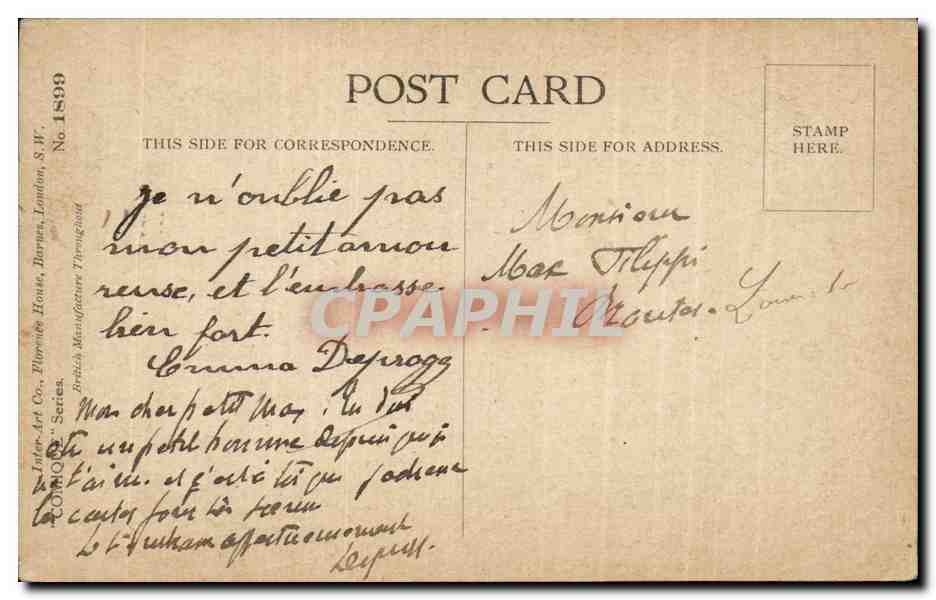 POST CARD
THIS SIDE FOR CORRESPONDENCE.
THIS SIDE FOR ADDRESS.
STAMP
HERE.
Inter-Art Co., Florence House, Barnes, London, S.W.
"COMIQUE" Series.
No. 1899
British Manufacture Throughout
je n'oublie pas
mon petit amou
reuse, et l'embrasse
bien fort.
Emma
Mon cher petit Max. tu dois
être un petit homme depuis que je
t'aime. et c'est à toi que j'adresse
les cartes pour tes
affectueusement
Monsieur
Max Filippi
CPAPHIL